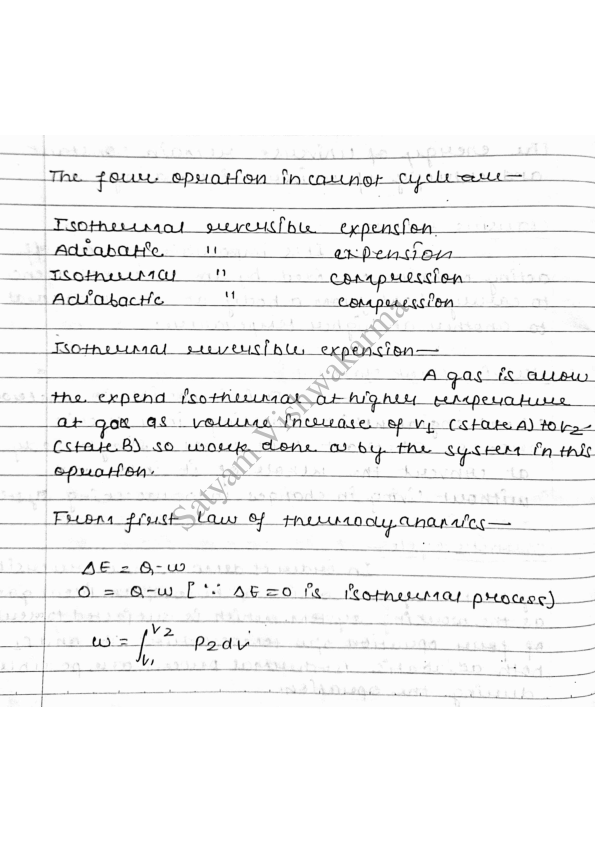 The four opration in carnot cycle are—
Isothermal reversible expension.
Adiabatic " expension
Isothermal " compression
Adiabactic " compression
Isothermal reversible expension—
A gas is allow
the expend isothermal at higher temperature
at gas as volume increase of V1 (state A) to V2
(state B) so work done w by the system in this
opration.
From first law of thermodyanamics—
ΔE = Q-w
0 = Q-w [∵ ΔE=0 is isothermal process)
w = ∫V1V2 P2dv
Satyam Vishwakarma